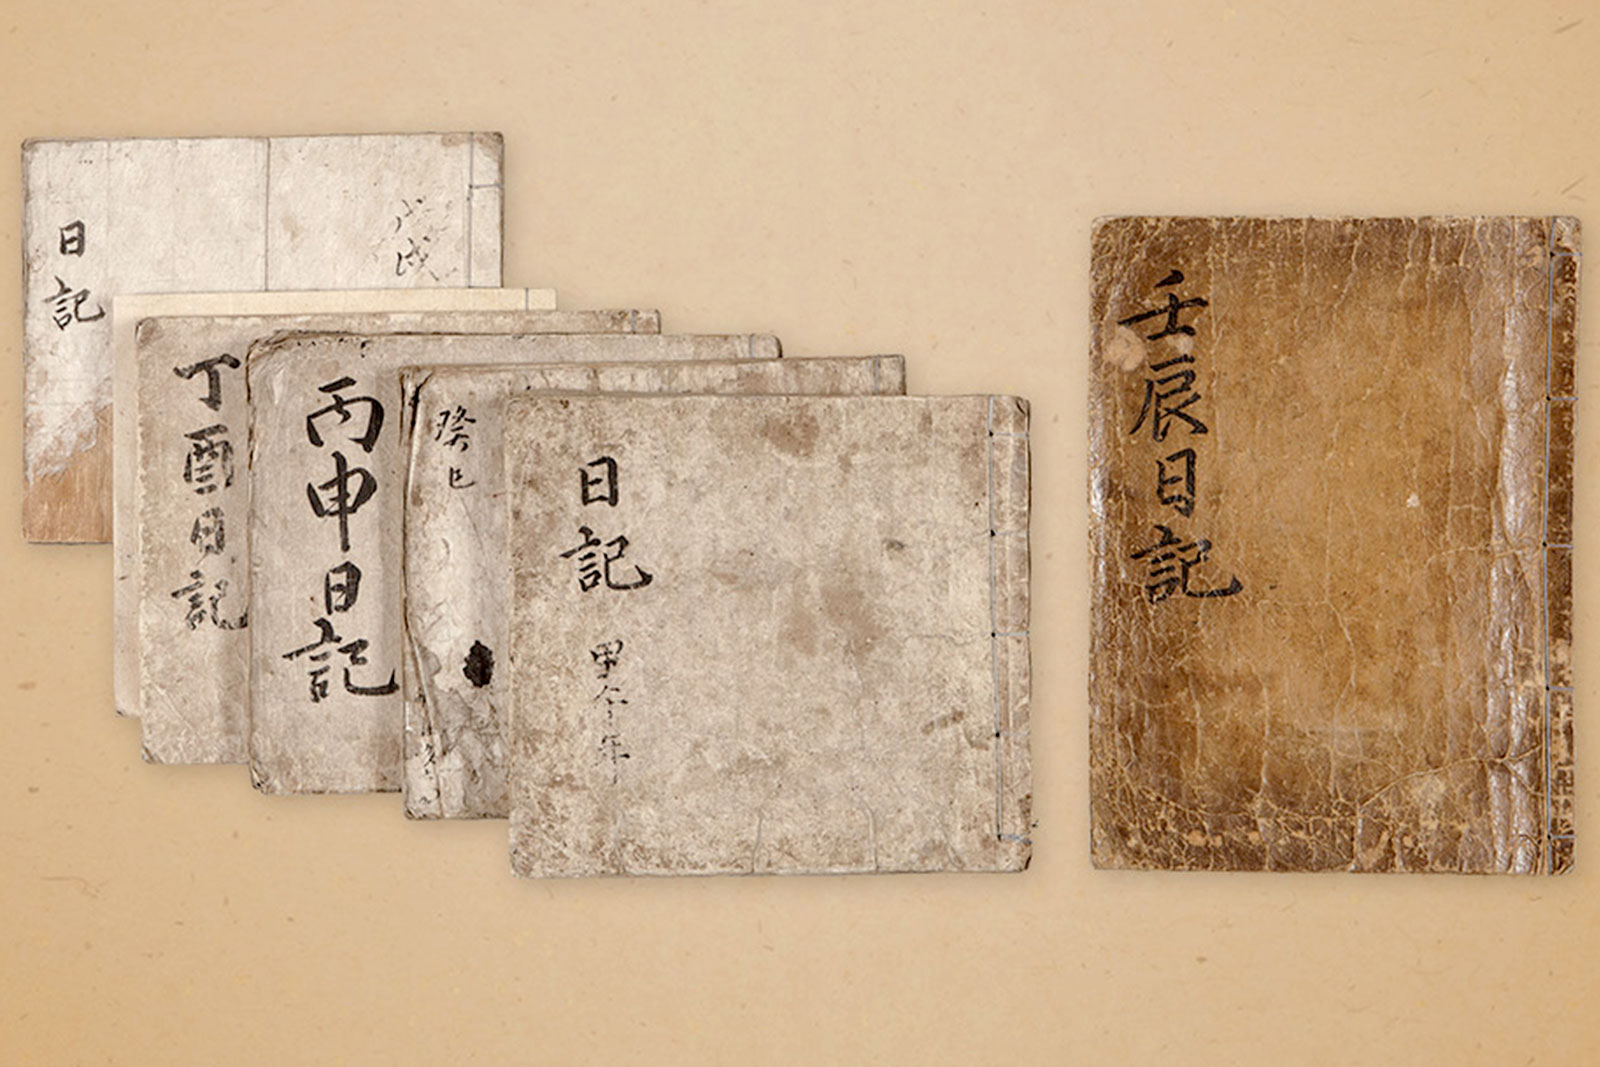 日記
戊戌
丁酉日記
丙申日記
癸巳
日記
甲午年
壬辰日記